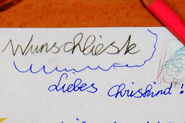 Wunschlieste
Liebes Chriskind!